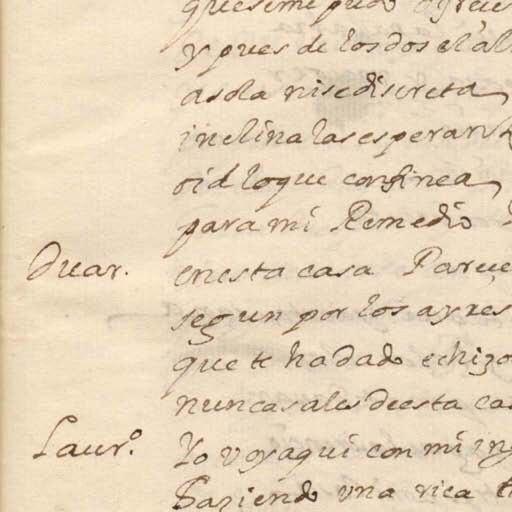 que se me pudo ofrece
y pues de los dos el al
asola ni se discreta
inclina las esperan
oid lo que con finea
para mi Remedio
Duar. en esta casa Parece
segun por los ayres
que te ha dado echizo
nunca sales de esta ca
Laur.º Yo voy aqui con mi in
haziendo una rica